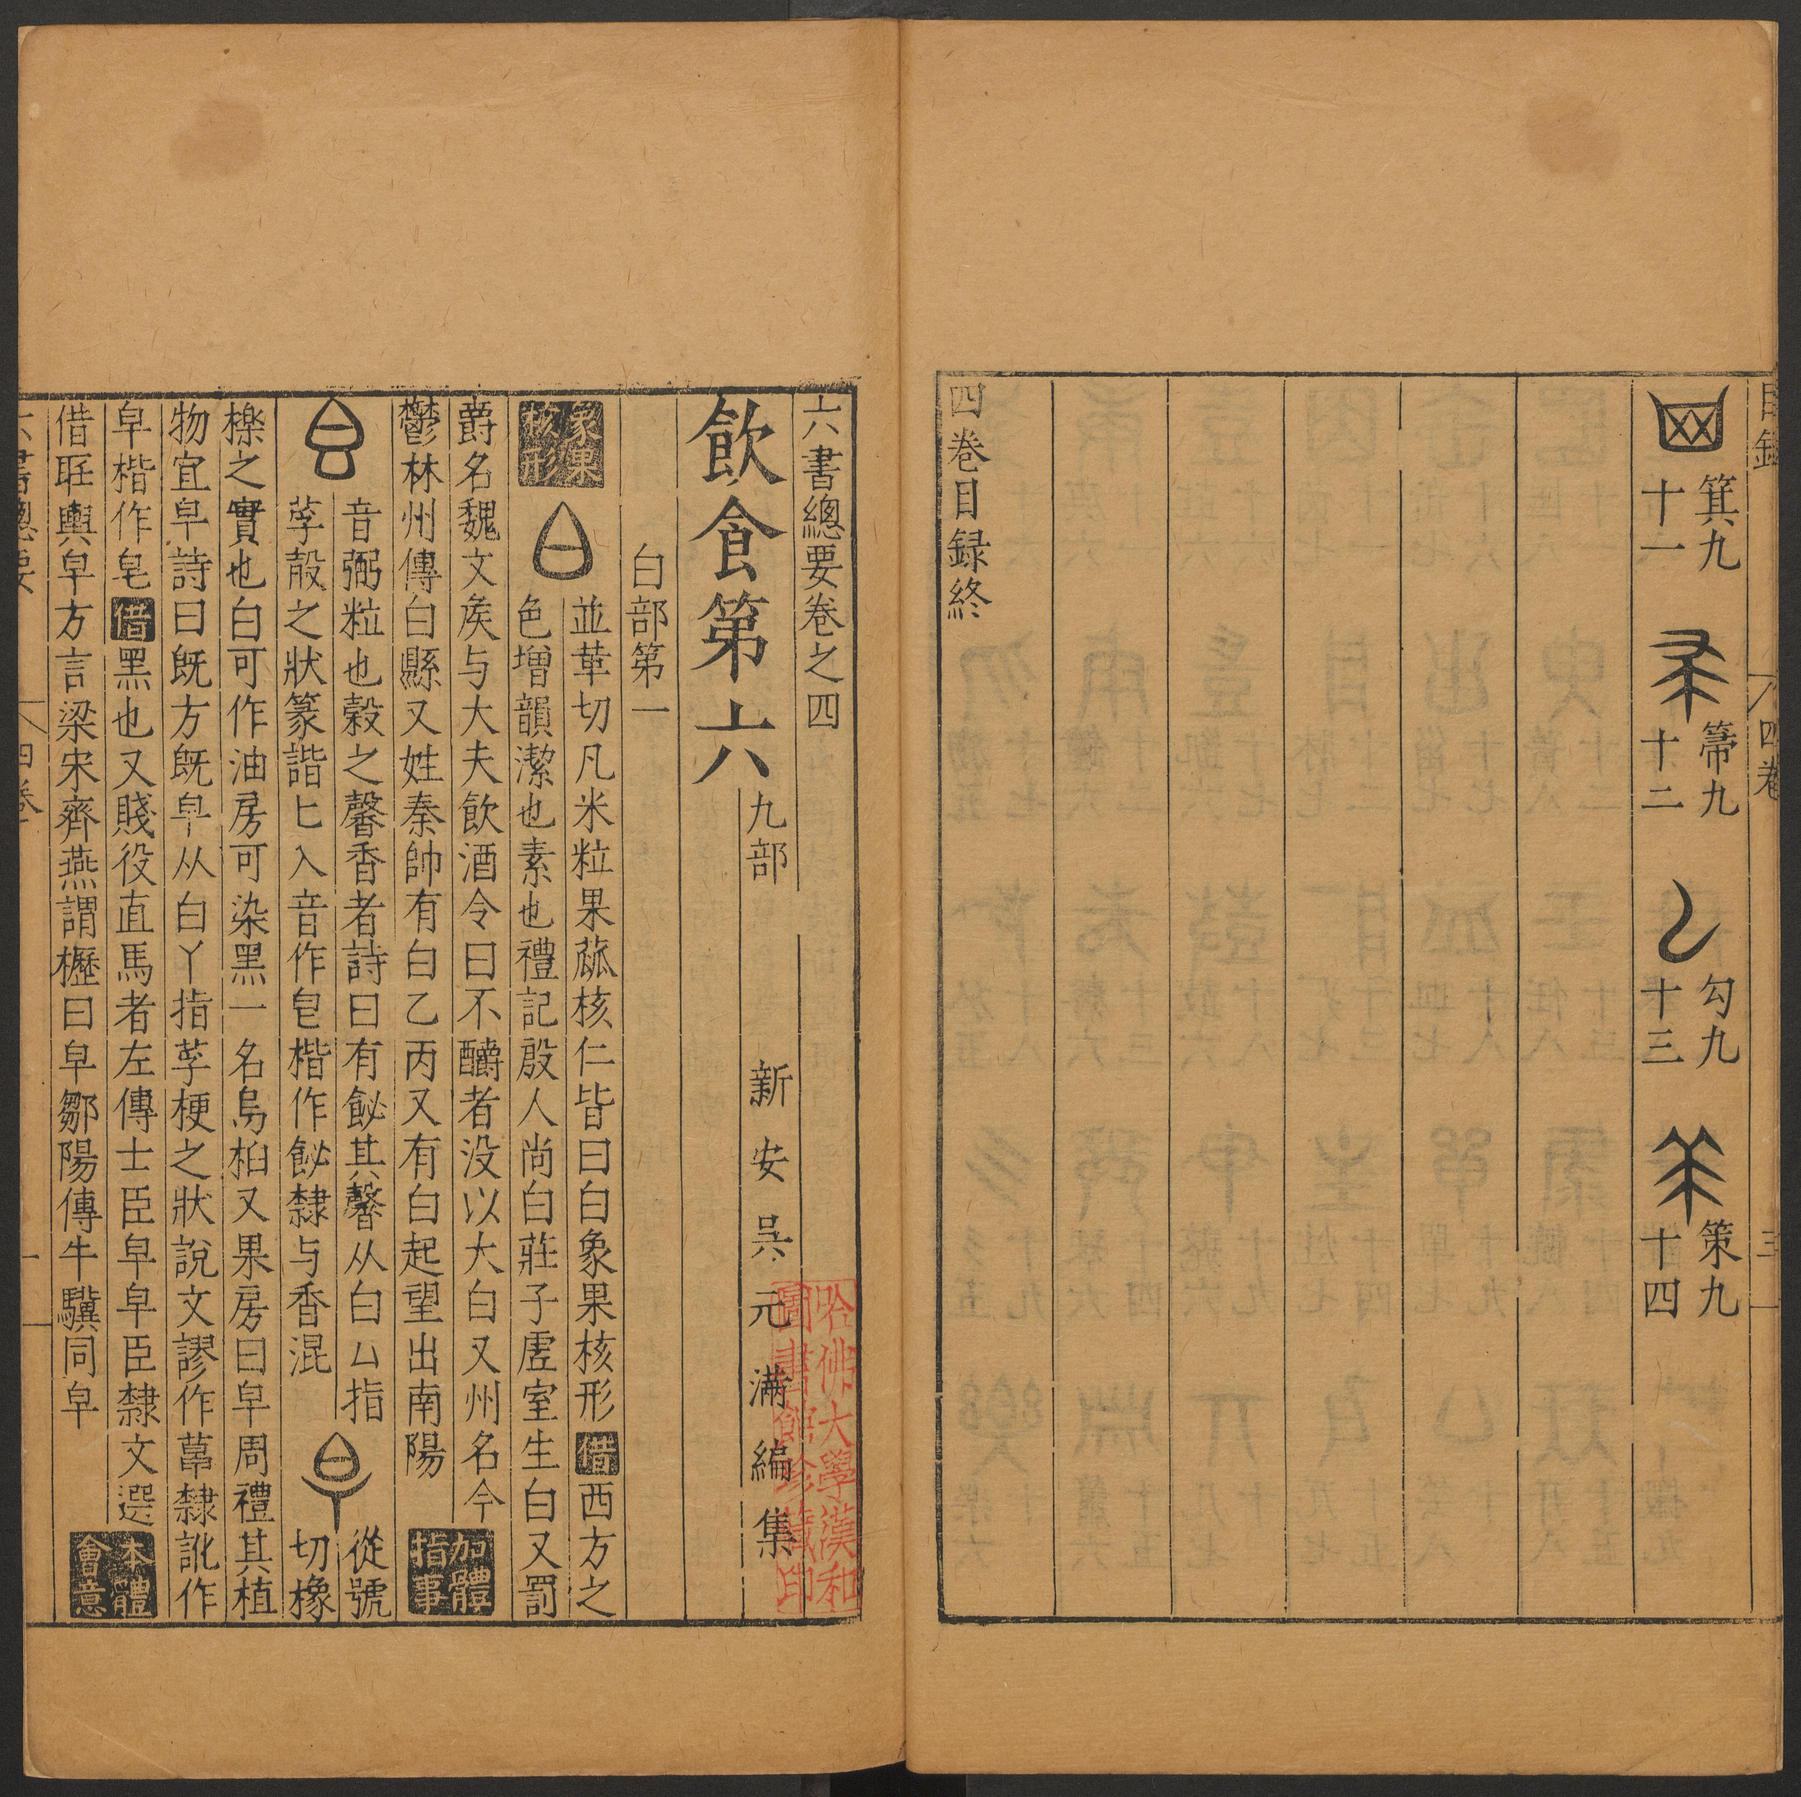 目錄 四卷 三
箕九 箒九 勾九 策九
十一 十二 十三 十四
四卷目録終
六書總要卷之四
新安吳元滿編集
飲食第六 九部
白部第一
象果核形
並革切凡米粒果蓏核仁皆曰白象果核形借西方之
色增韻潔也素也禮記殷人尚白莊子虛室生白又罰
爵名魏文矦与大夫飲酒令曰不釂者没以大白又州名今
鬱林州傳白縣又姓秦帥有白乙丙又有白起望出南陽
加體指事
音弼粒也穀之馨香者詩曰有飶其馨从白厶指
莩殻之狀篆諧匕入音作皀楷作飶隸与香混
從號
切橡
櫟之實也白可作油房可染黑一名烏桕又果房曰皁周禮其植
物宜皁詩曰旣方旣皁从白丫指莩梗之狀說文謬作草隸訛作
皁楷作皂借黑也又賤役直馬者左傳士臣皁皁臣隸文選
借駔輿皁方言梁宋齊燕謂櫪曰皁鄒陽傳牛驥同皁
本體會意
六書總要 四卷 一
哈佛大學漢和
圖書館珍藏印